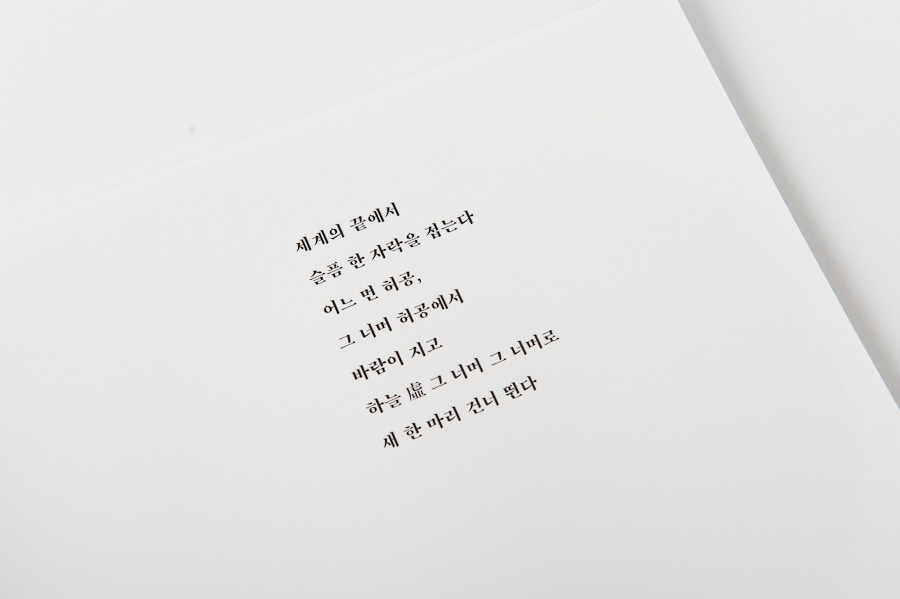 세계의 끝에서
슬픔 한 자락을 접는다
어느 먼 허공,
그 너머 허공에서
바람이 지고
하늘 虛 그 너머 그 너머로
새 한 마리 건너 뛴다